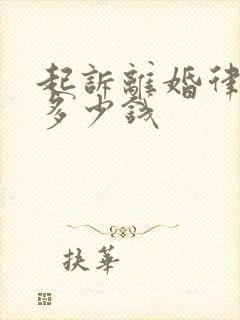 起訴離婚律
多少錢
扶華